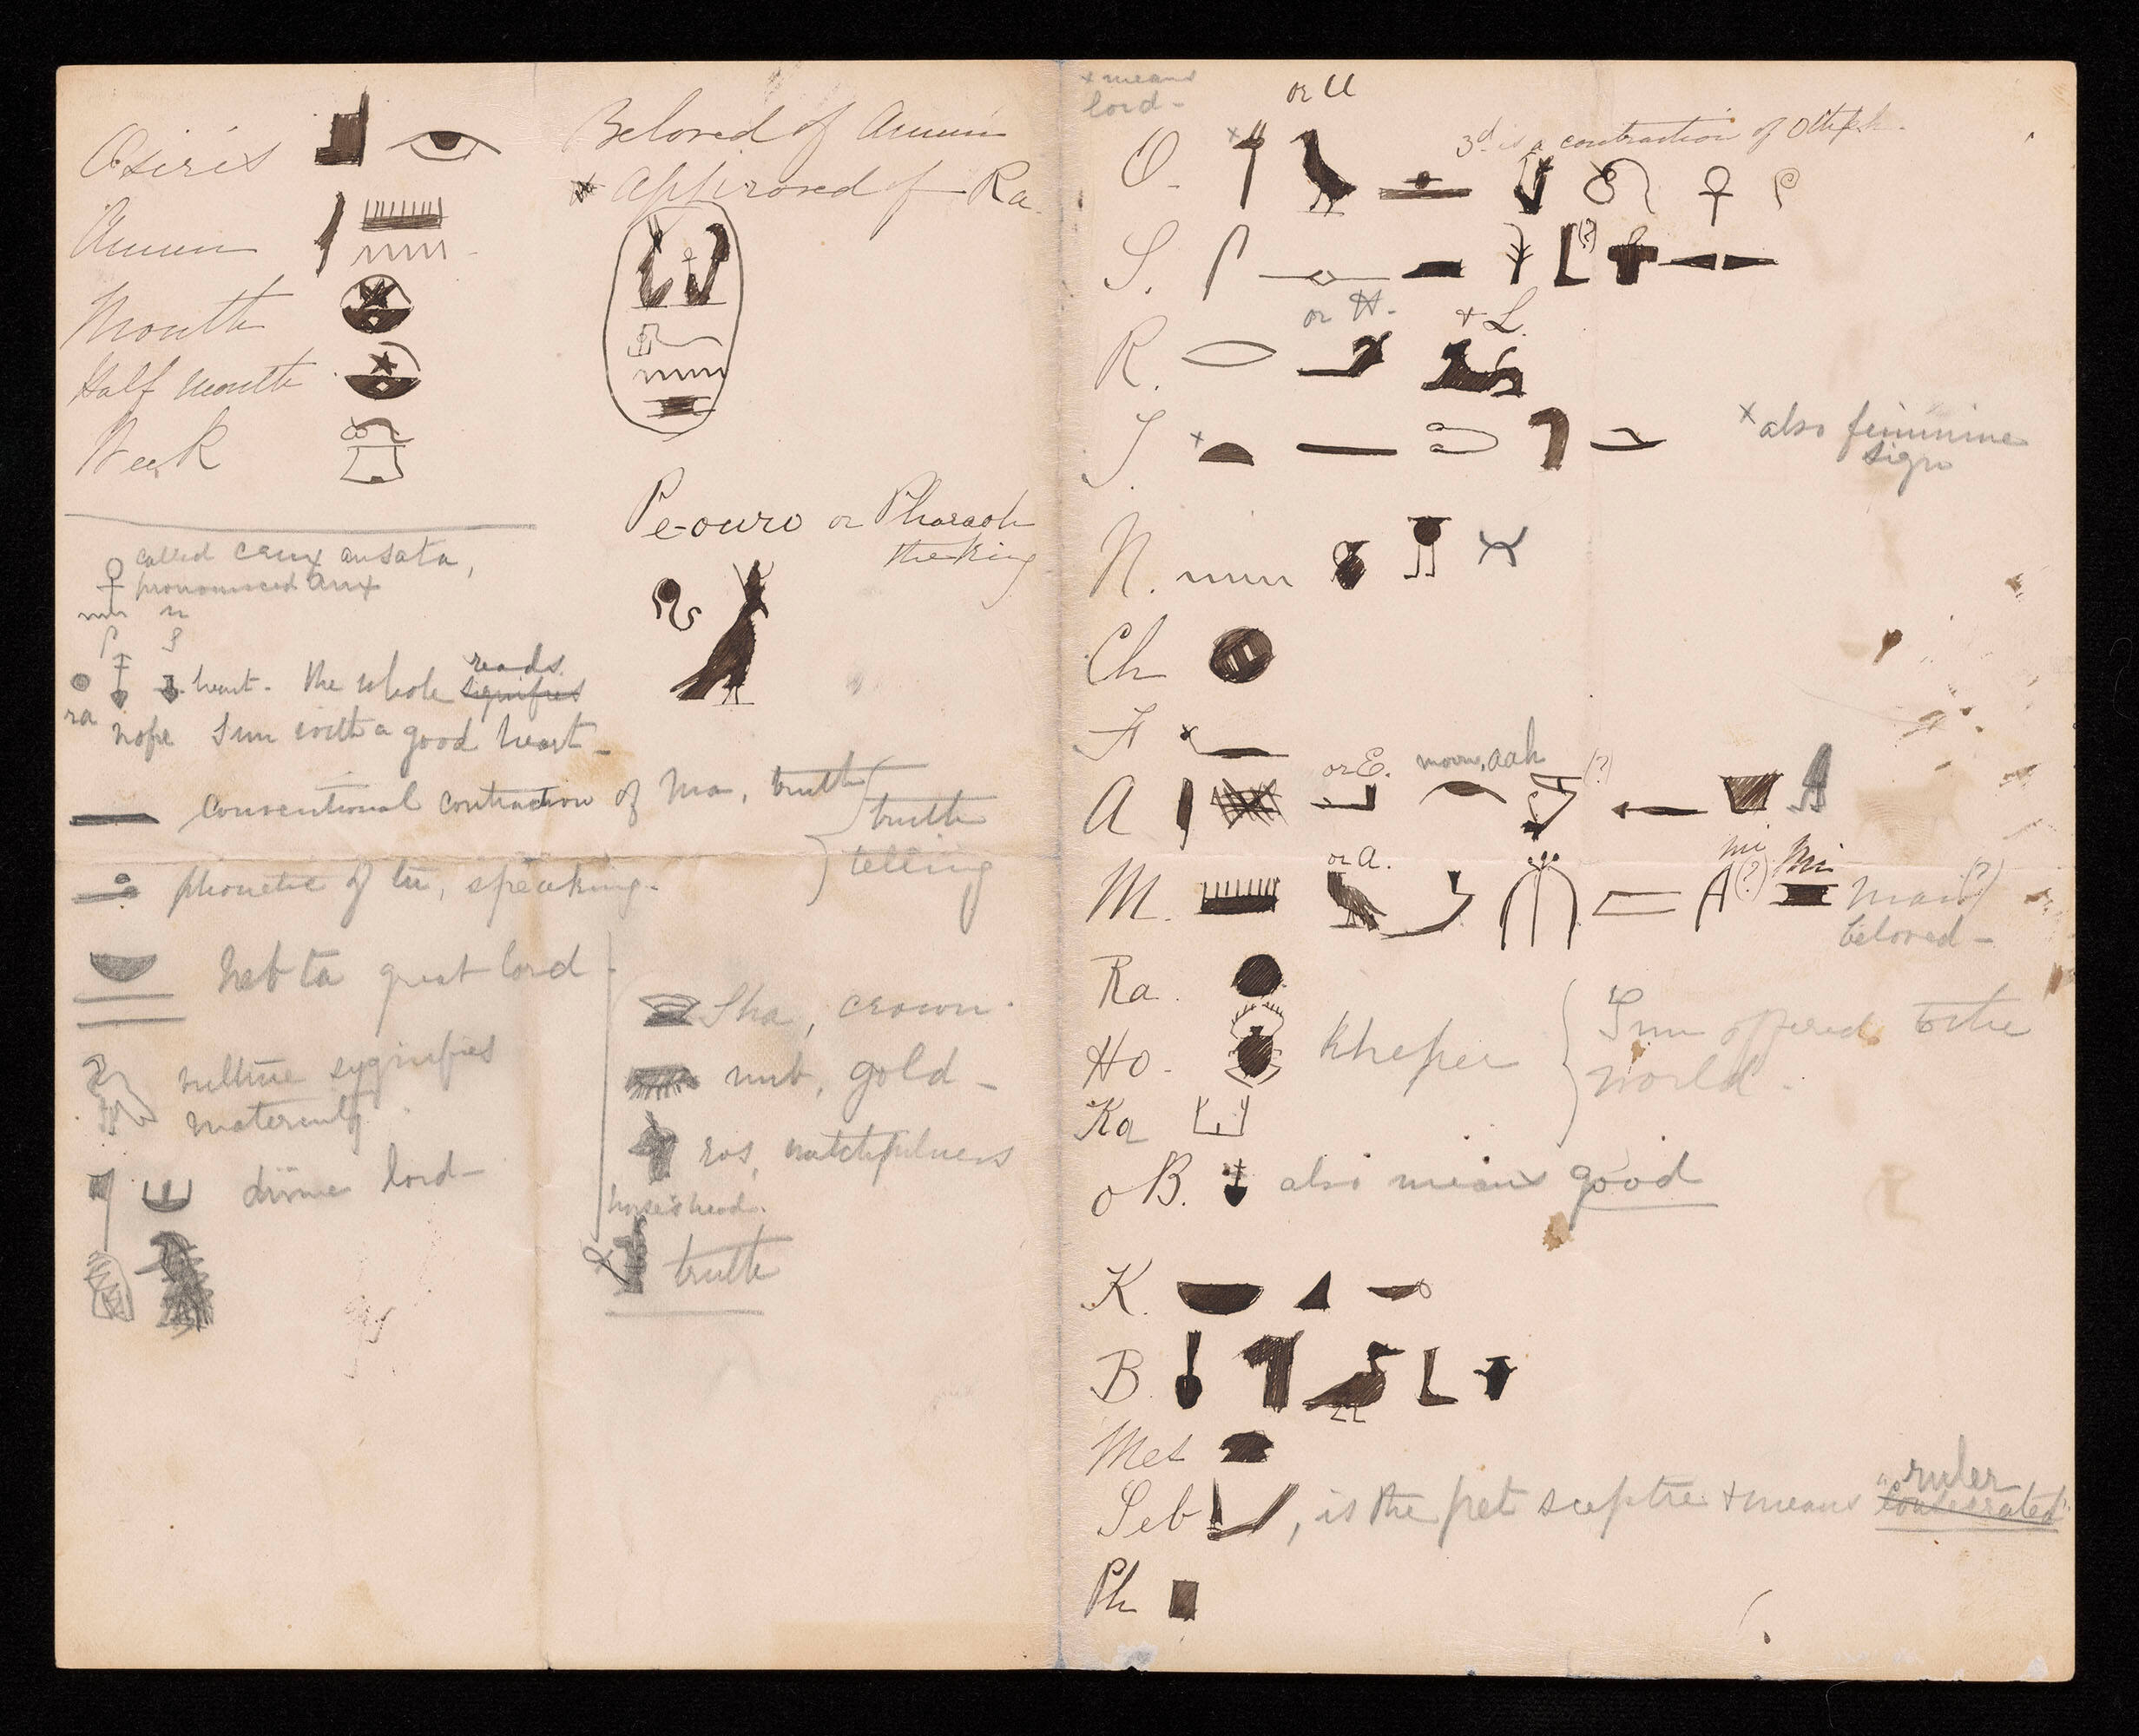 Osiris
Amun
Month
Half month
Week
Beloved of Amun
Approved of Ra.
Pe-ouro or Pharaoh
the king
called crux ansata,
pronounced
n
S
heart. the whole reads signifies
ra nofre Sun with a good heart
conventional contraction of Ma, truth
phonetic of tu, speaking.
truth
telling
neb ta great lord
vulture signifies
maternity
divine lord
Sha, crown.
nub, gold
ros, watchfulness
horse's head.
truth
x means
lord
or U
3d is a contraction of
O.
S. (?)
or H. + L
R.
T. x
x also feminine
sign
N.
Ch
F x
or E. moon, aah
A (?)
or A. mi Mi
M. (?) mai(?)
beloved
Ra.
Ho. Kheper
Sun offered to the
world.
Ka
o B. also means good
K.
B.
Mes
Seb , is the pet sceptre + means "ruler consecrated"
Ph